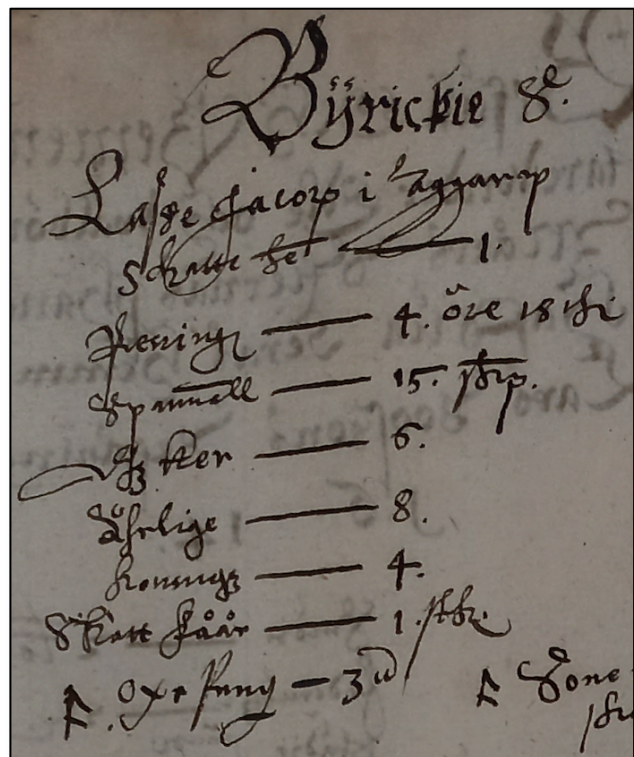 Bÿrickie S.
Lasse Jacop i Aggarp
Skatte he — 1.
Pening — 4. öre 18
Spannall — 15. skp.
ker — 6.
Åhrlige — 8.
Koning — 4.
Skatt Fåår — 1. stk.
Oxe Peng — 3
Sone